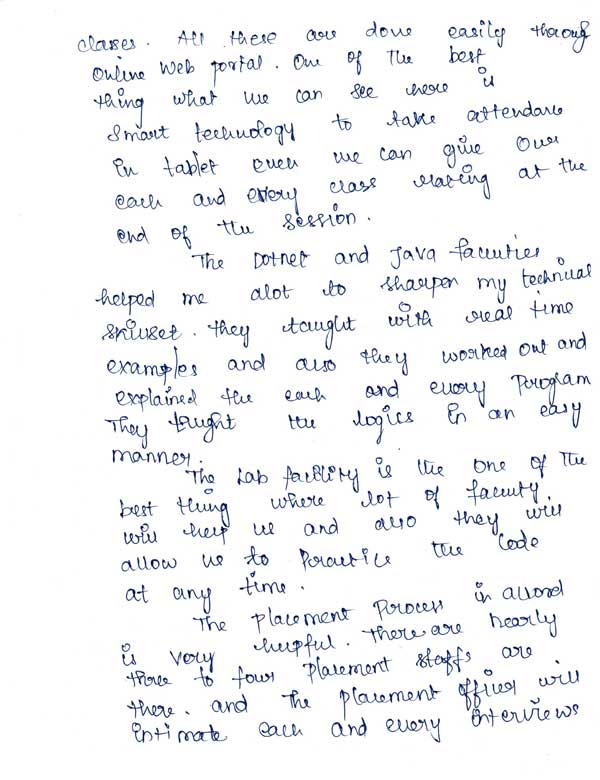 classes. All these are done easily throug
Online Web portal. One of the best
thing what we can see here is
Smart technology to take attendance
in tablet even we can give our
each and every class rating at the
end of the session.
The Dotnet and Java faculties
helped me alot to sharpen my technical
skillset. they taught with real time
examples and also they worked out and
explained the each and every program
They taught the logics in an easy
manner.
The Lab facility is the one of the
best thing where lot of faculty
will help us and also they will
allow us to Practice the Code
at any time.
The Placement Process in allord
is very helpful. there are nearly
three to four placement staffs are
there. and The placement officer will
intimate each and every interviews